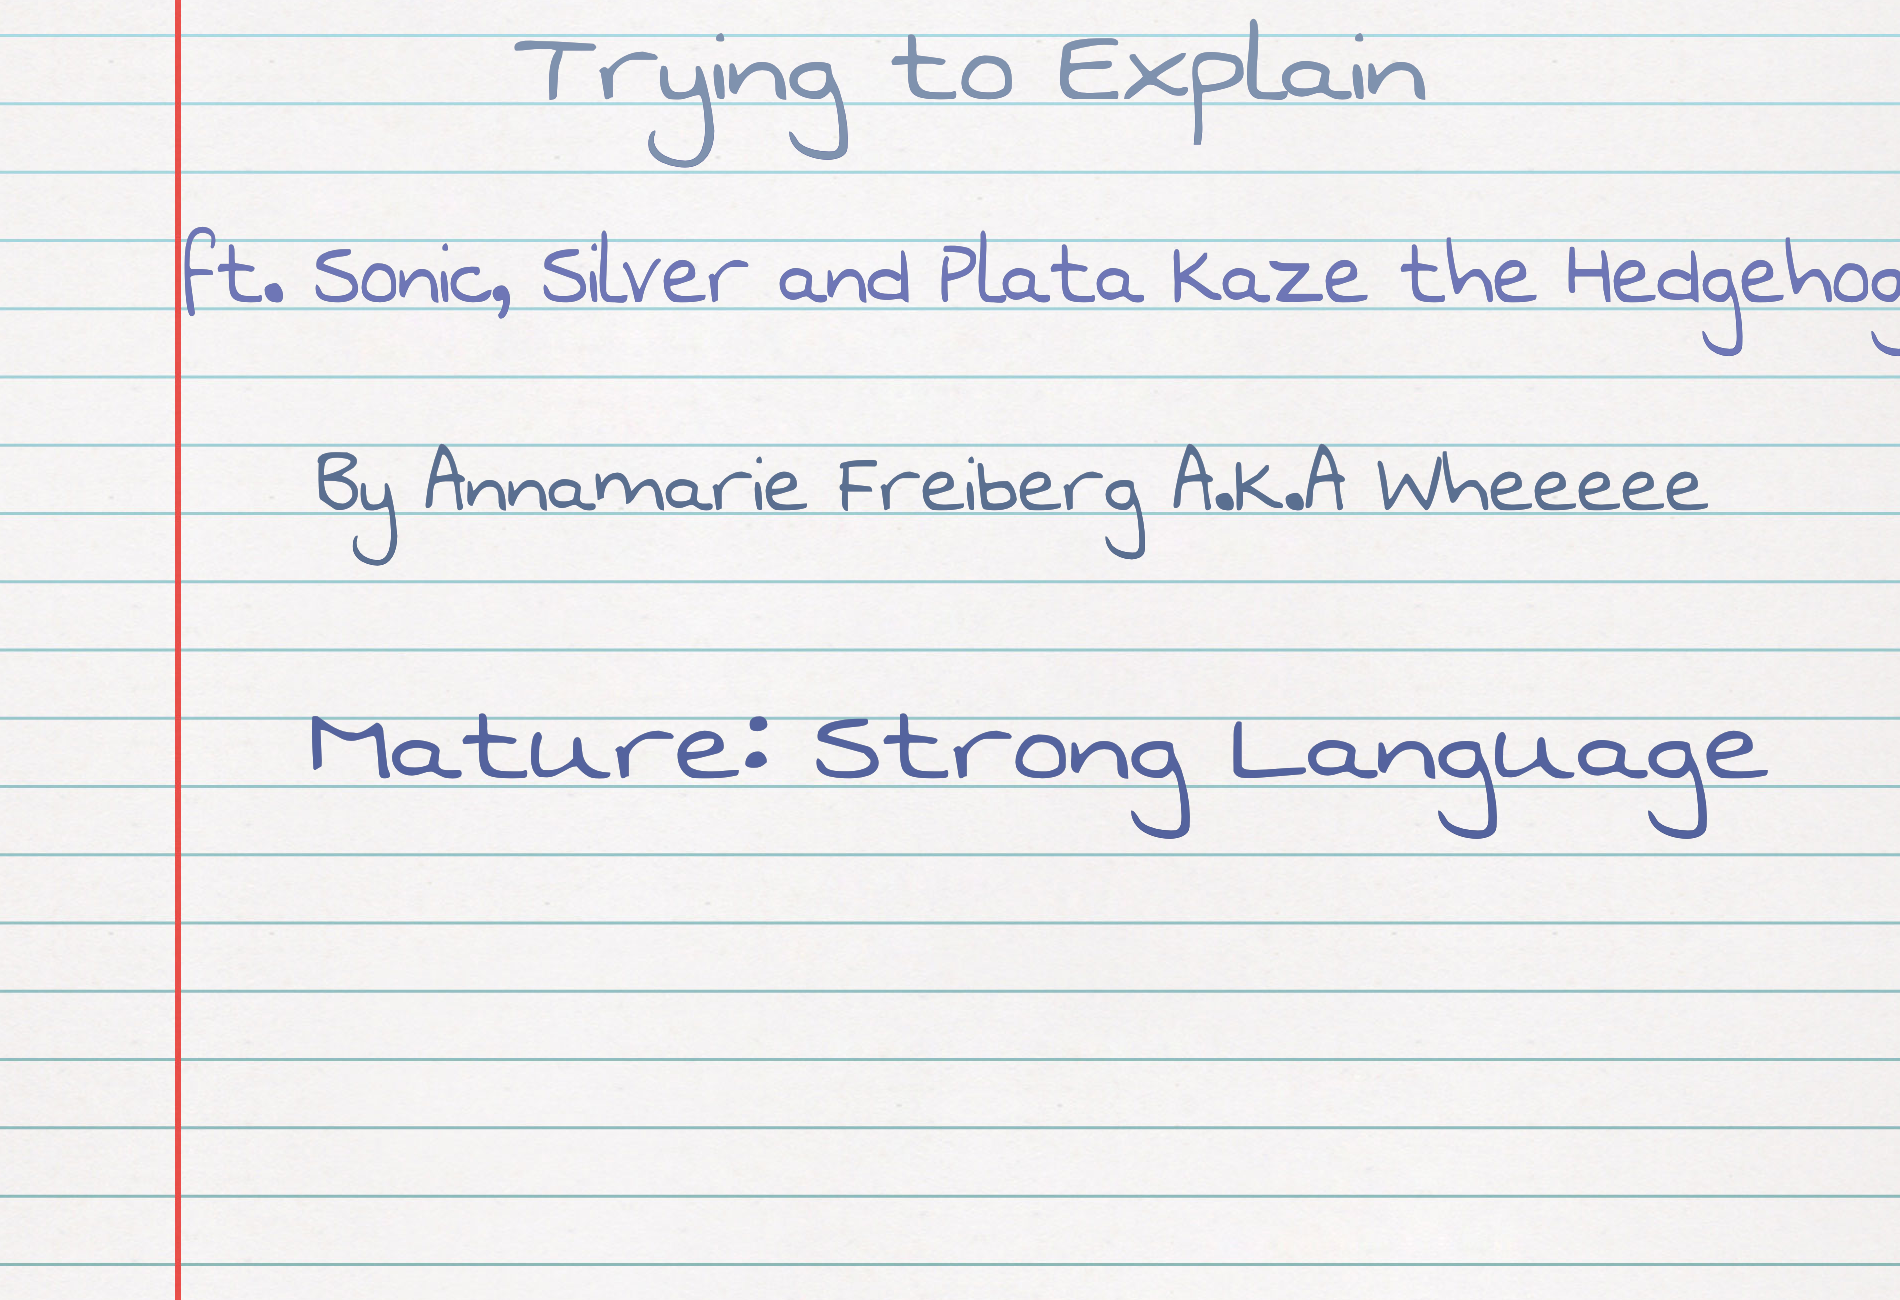 Trying to Explain
ft. Sonic, Silver and Plata Kaze the Hedgehog
By Annamarie Freiberg A.K.A Wheeeee
Mature: Strong Language